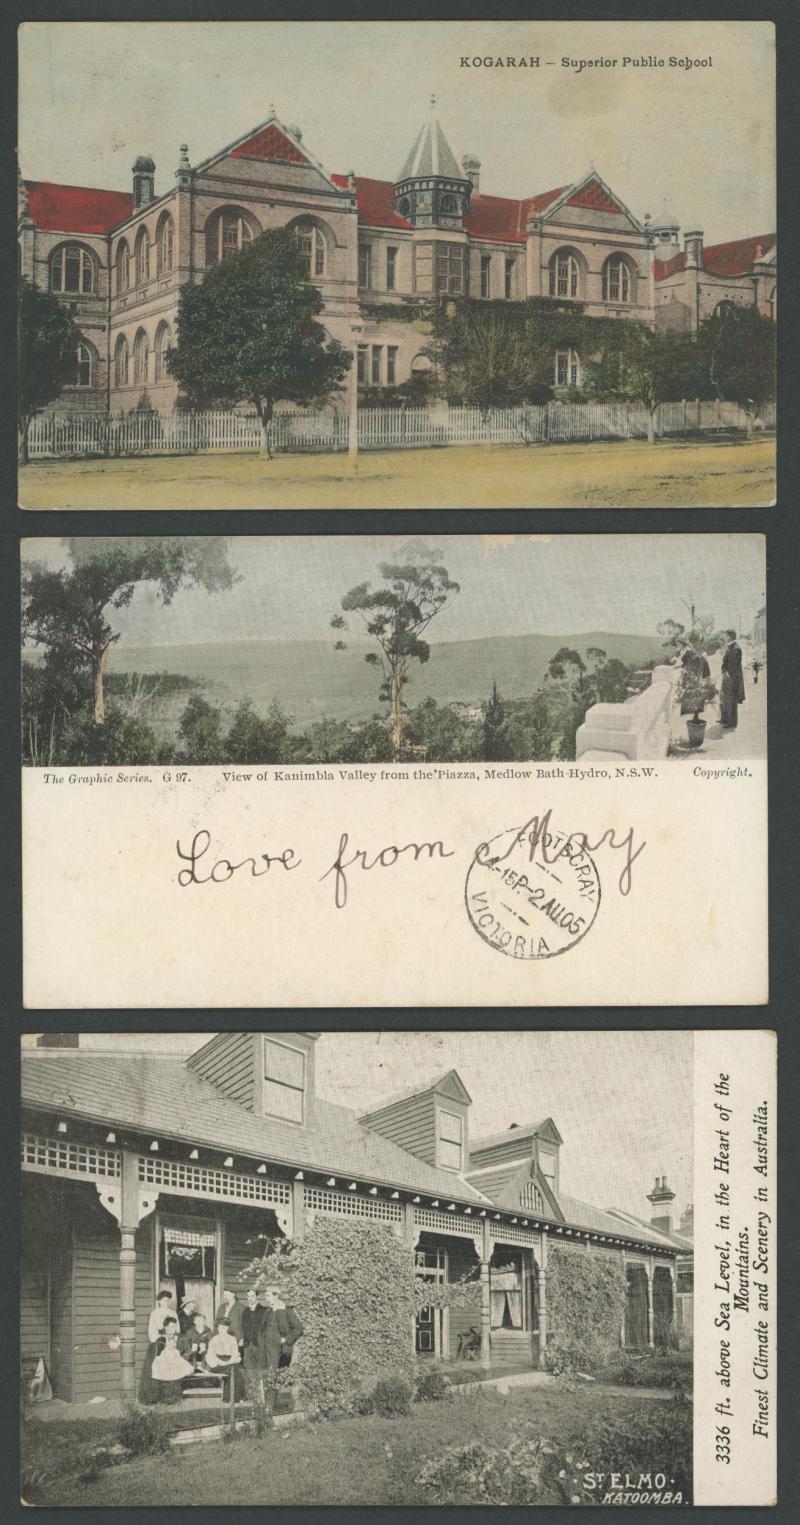 KOGARAH – Superior Public School
The Graphic Series. G 97. View of Kanimbla Valley from the Piazza, Medlow Bath Hydro, N.S.W. Copyright.
Love from May
FOOTSCRAY
4-15P-2AU05
VICTORIA
3336 ft. above Sea Level, in the Heart of the
Mountains.
Finest Climate and Scenery in Australia.
·ST ELMO·
KATOOMBA.